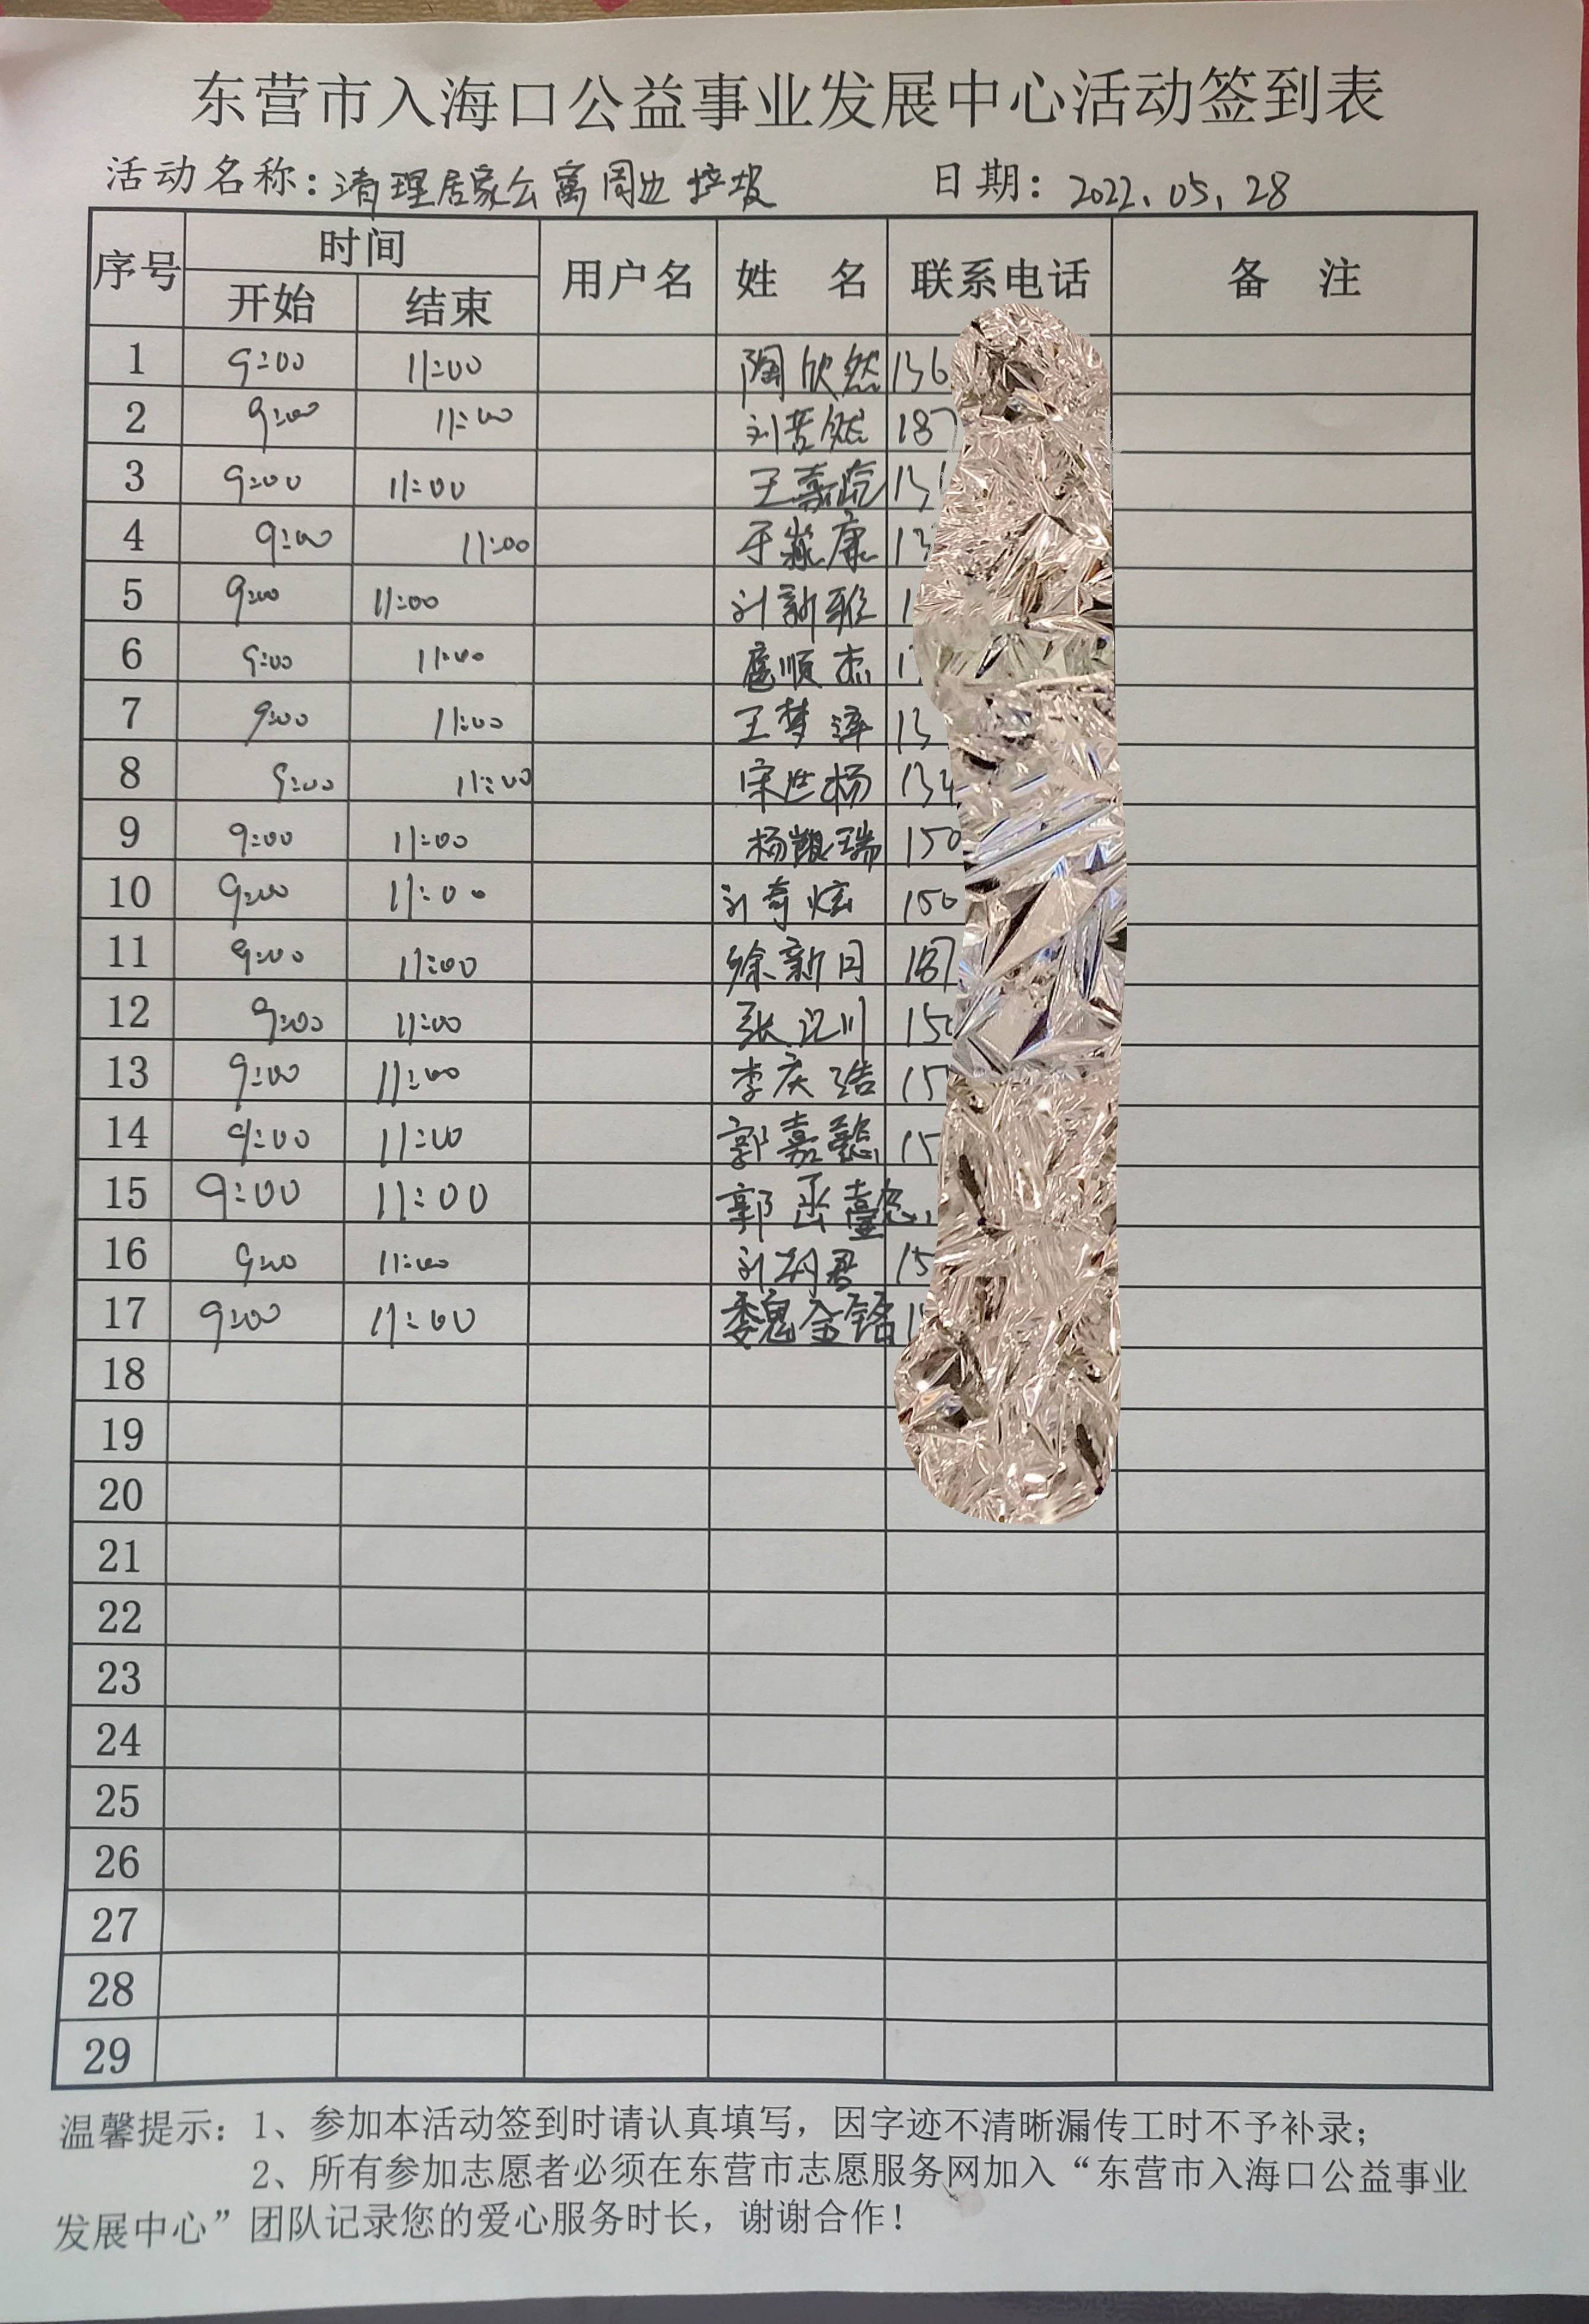 东营市入海口公益事业发展中心活动签到表
活动名称：清理居家公寓周边垃圾 日期：2022.05.28
序号 时间 用户名 姓 名 联系电话 备 注
开始 结束
1 9:00 11:00 陶欣然 136
2 9:00 11:00 刘芸然 187
3 9:00 11:00 王嘉晗 13
4 9:00 11:00 于嵩康 13
5 9:00 11:00 刘新雅 1
6 9:00 11:00 扈顺杰 1
7 9:00 11:00 王梦泽 13
8 9:00 11:00 宋世杨 134
9 9:00 11:00 杨凯瑞 150
10 9:00 11:00 刘奇炫 150
11 9:00 11:00 徐新月 187
12 9:00 11:00 张汜川 150
13 9:00 11:00 李庆浩 15
14 9:00 11:00 郭嘉懿 15
15 9:00 11:00 郭丞懿
16 9:00 11:00 刘君 15
17 9:00 11:00 魏金铭 1
18
19
20
21
22
23
24
25
26
27
28
29
温馨提示：1、参加本活动签到时请认真填写，因字迹不清晰漏传工时不予补录；
2、所有参加志愿者必须在东营市志愿服务网加入“东营市入海口公益事业
发展中心”团队记录您的爱心服务时长，谢谢合作！